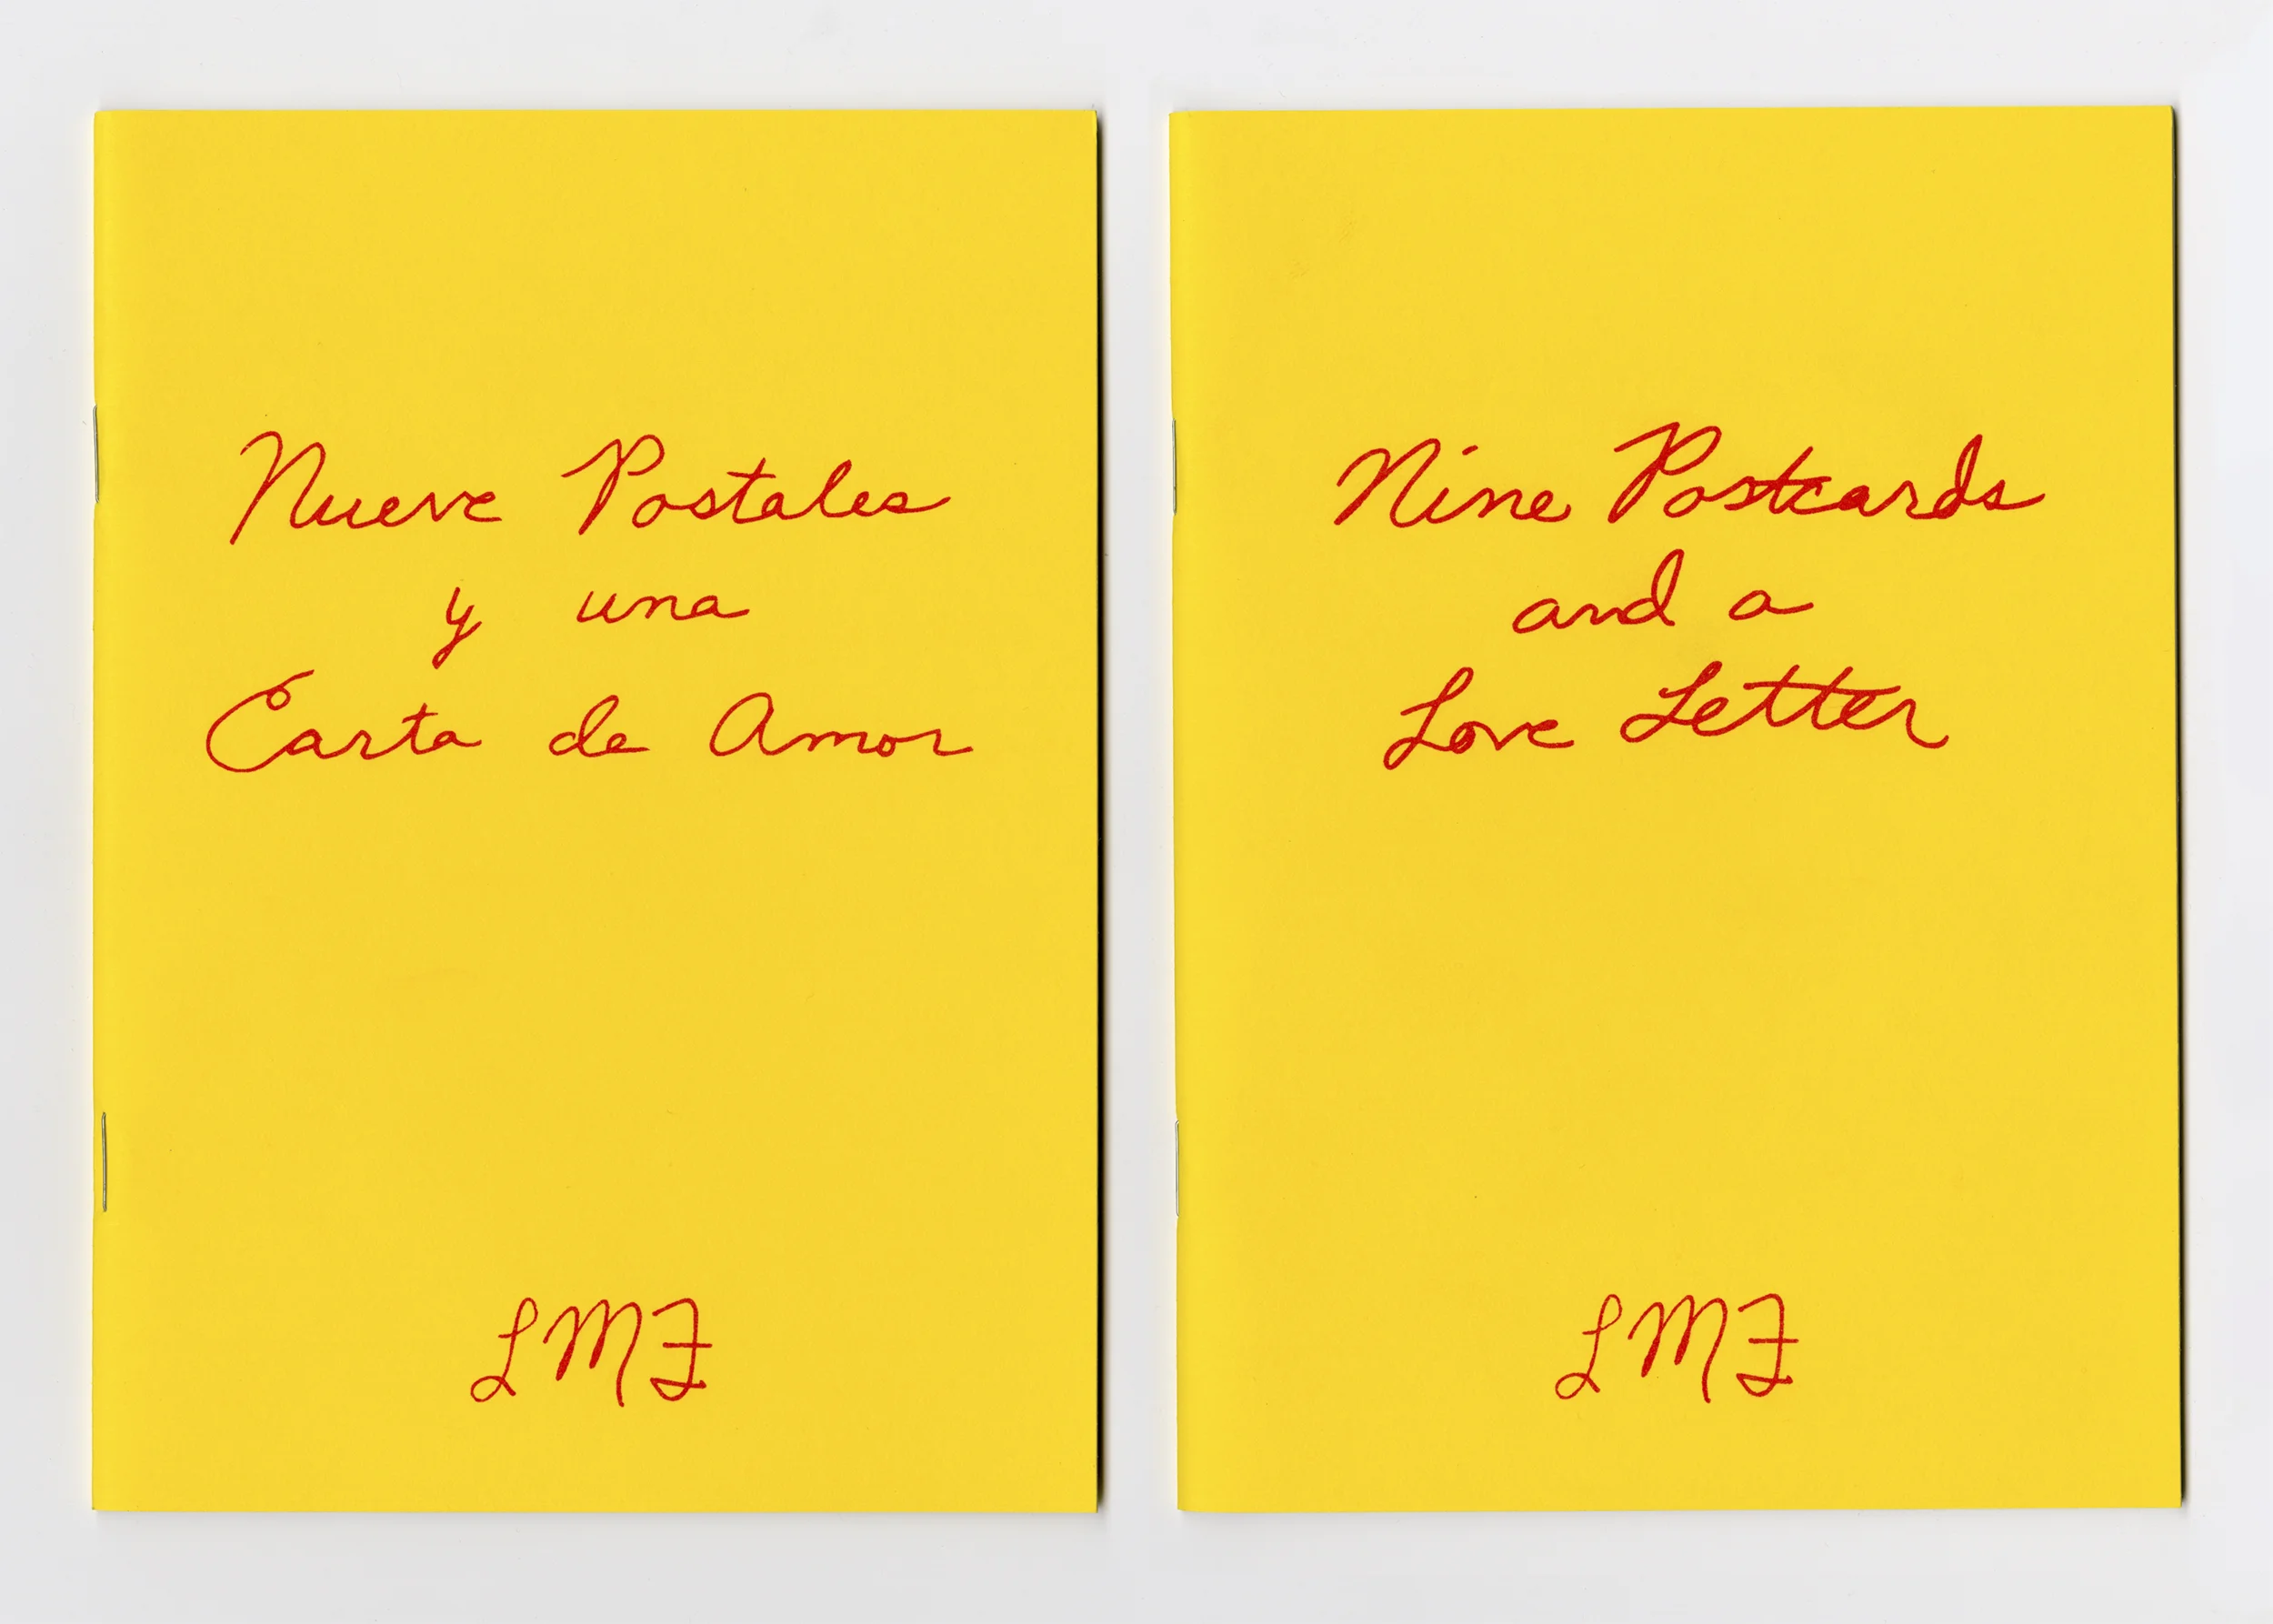 Nueve Postales
y una
Carta de Amor
LMF
Nine Postcards
and a
Love Letter
LMF